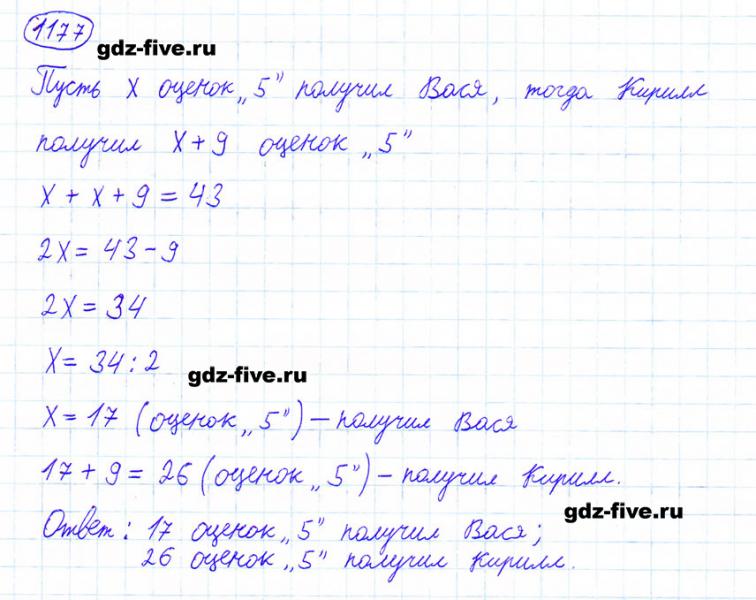 1177
gdz-five.ru
Пусть x оценок „5" получил Вася, тогда Кирилл
получил x+9 оценок „5"
x + x + 9 = 43
2x = 43 - 9
2x = 34
x = 34 : 2
gdz-five.ru
x = 17 (оценок „5") – получил Вася
17 + 9 = 26 (оценок „5") – получил Кирилл.
gdz-five.ru
Ответ: 17 оценок „5" получил Вася;
26 оценок „5" получил Кирилл.